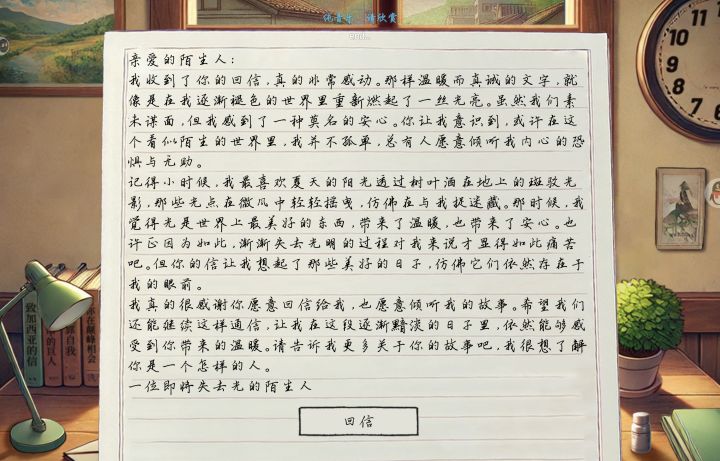 纯音乐，请欣赏
end...
亲爱的陌生人：
我收到了你的回信，真的非常感动。那样温暖而真诚的文字，就
像是在我逐渐褪色的世界里重新燃起了一丝光亮。虽然我们素
未谋面，但我感到了一种莫名的安心。你让我意识到，或许在这
个看似陌生的世界里，我并不孤单，总有人愿意倾听我内心的恐
惧与无助。
记得小时候，我最喜欢夏天的阳光透过树叶洒在地上的斑驳光
影，那些光点在微风中轻轻摇曳，仿佛在与我捉迷藏。那时候，我
觉得光是世界上最美好的东西，带来了温暖，也带来了安心。也
许正因为如此，渐渐失去光明的过程对我来说才显得如此痛苦
吧。但你的信让我想起了那些美好的日子，仿佛它们依然存在于
我的眼前。
我真的很感谢你愿意回信给我，也愿意倾听我的故事。希望我们
还能继续这样通信，让我在这段逐渐黯淡的日子里，依然能够感
受到你带来的温暖。请告诉我更多关于你的故事吧，我很想了解
你是一个怎样的人。
一位即将失去光的陌生人
回信
致加西亚的信
的巨人
自我
在巅峰相会
10
11
9
8
7
6